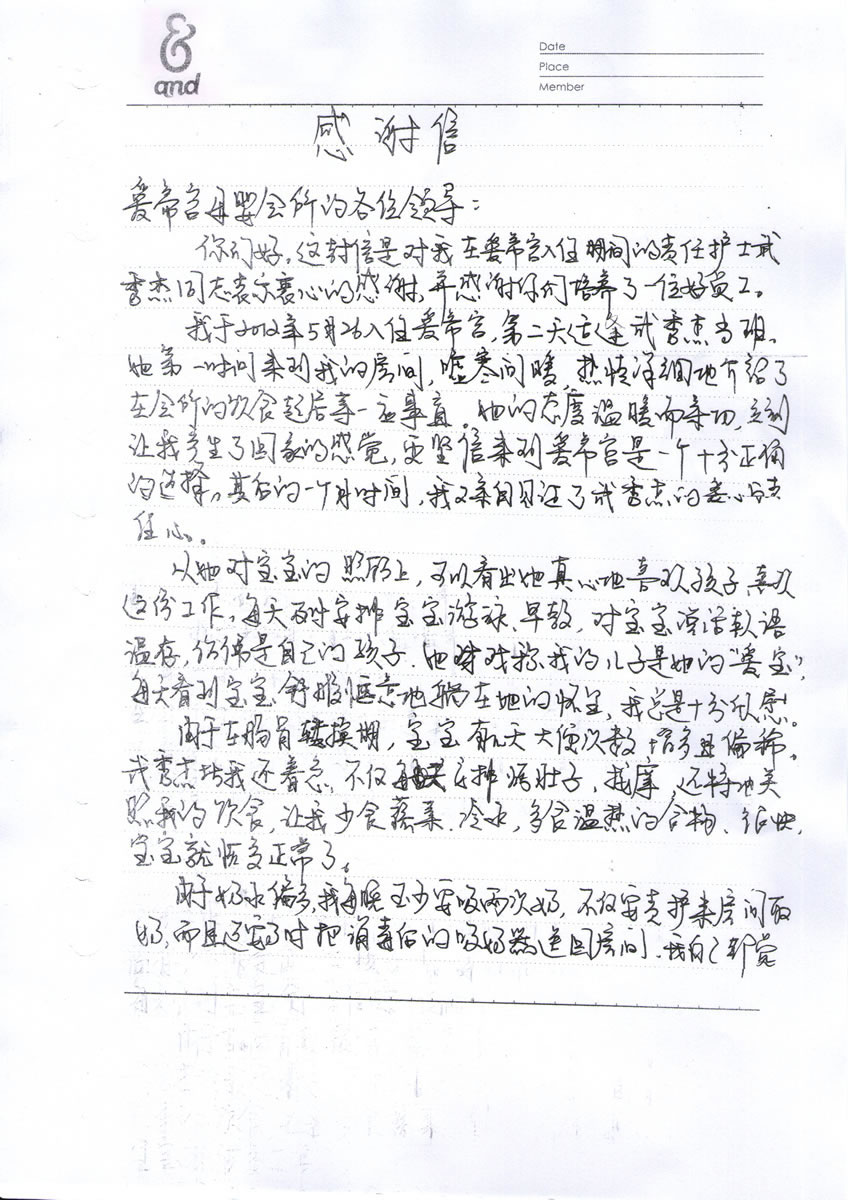 and
Date
Place
Member
感谢信
爱帝宫母婴会所的各位领导：
你们好，这封信是对我在爱帝宫入住期间的责任护士武
秀杰同志表示衷心的感谢，并感谢你们培养了一位好员工。
我于2012年5月26入住爱帝宫，第二天适逢武秀杰当班。
她第一时间来到我的房间，嘘寒问暖，热情详细地介绍了
在会所的饮食起居等一应事宜。她的态度温暖而亲切，立刻
让我产生了回家的感觉，更坚信来到爱帝宫是一个十分正确
的选择。其后的一个月时间，我又亲自见证了武秀杰的爱心与责
任心。
从她对宝宝的照顾上，可以看出她真心地喜欢孩子，喜欢
这份工作。每天及时安排宝宝游泳、早教，对宝宝说话软语
温存，仿佛是自己的孩子。她戏称我的儿子是她的“爱宝”，
每天看到宝宝舒服惬意地躺在她的怀里，我总是十分欣慰。
由于在肠胃转换期，宝宝有几天大便次数增多且偏稀。
武秀杰比我还着急，不仅每天安排焐肚子，按摩，还特地关
照我的饮食，让我少食蔬菜、冷水，多食温热的食物，很快，
宝宝就恢复正常了。
由于奶水偏多，我每晚至少要吸两次奶，不仅要责护来房间取
奶，而且还要及时把消毒后的吸奶器送回房间。我自己都觉